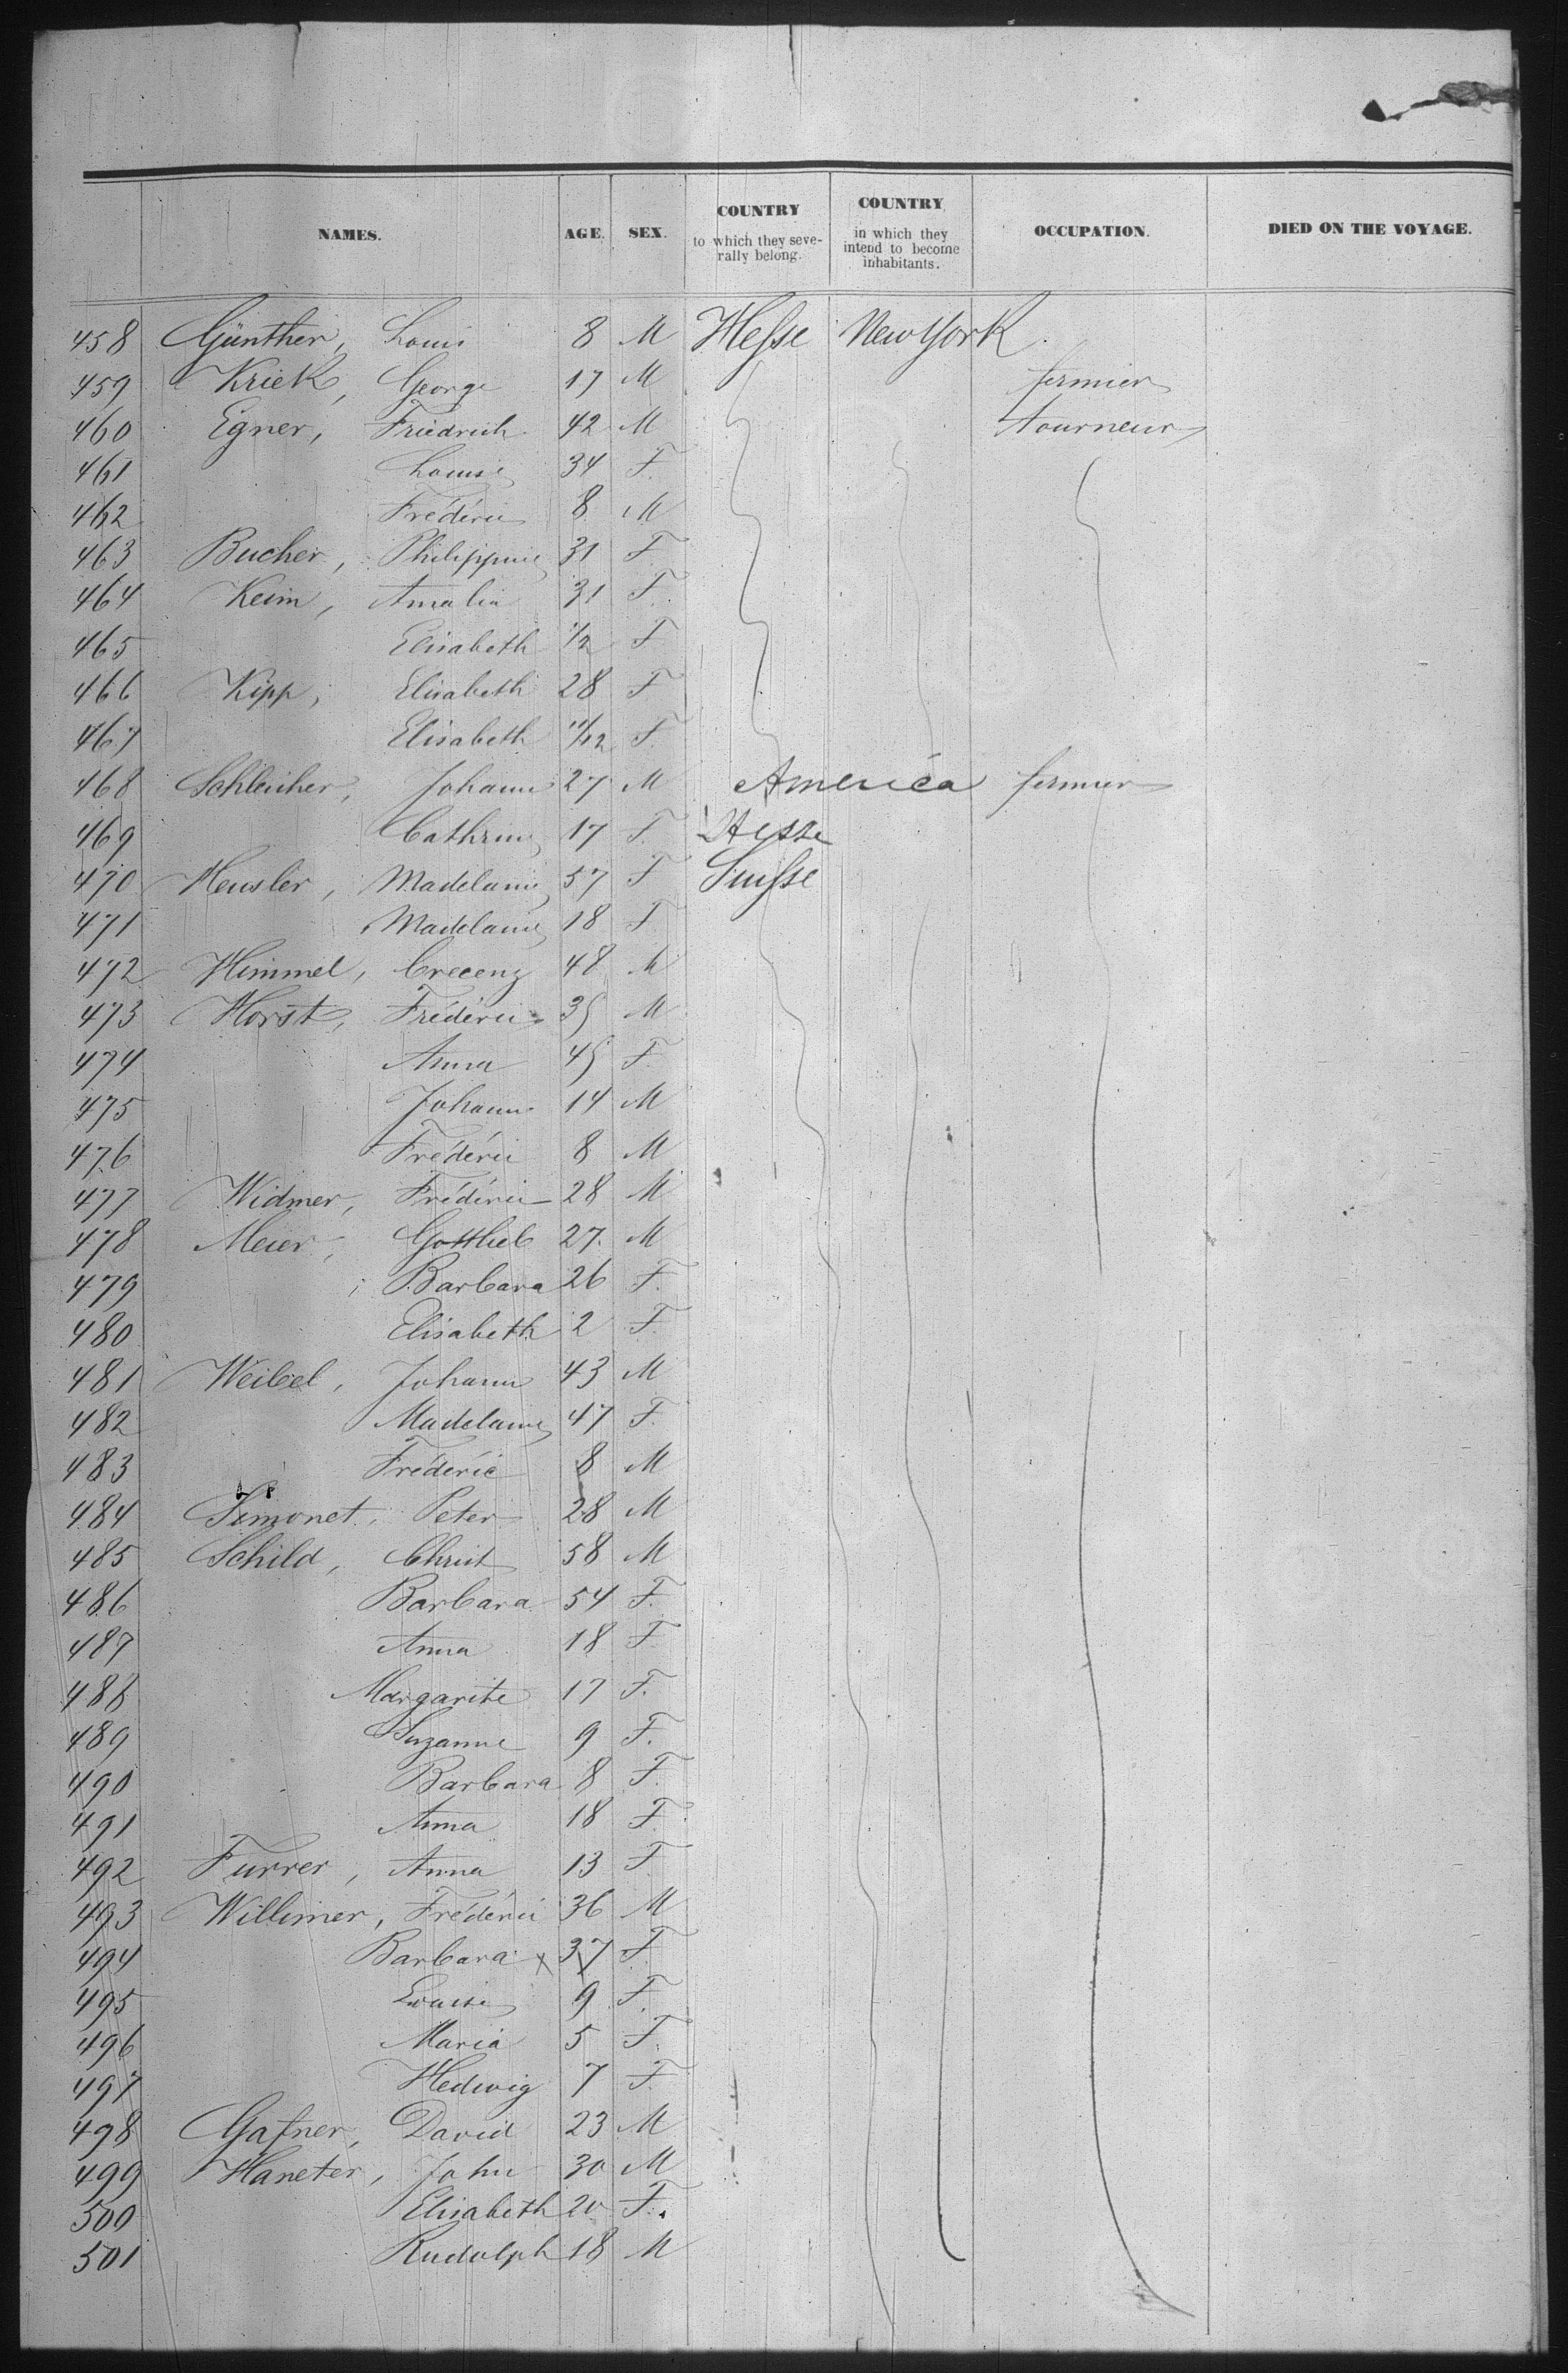 NAMES. AGE. SEX. COUNTRY to which they seve-rally belong. COUNTRY in which they intend to become inhabitants. OCCUPATION. DIED ON THE VOYAGE.
458 Günther, Louis 8 M Hesse New York
459 Kriek, George 17 M fermier
460 Egner, Friedrich 42 M tourneur
461 Louise 34 F.
462 Frédéric 8 M
463 Bucher, Philippine 31 F
464 Keim, Amalia 31 F.
465 Elisabeth 1/2 F
466 Kipp, Elisabeth 28 F
467 Elisabeth 11/12 F.
468 Schleicher, Johann 27 M America fermier
469 Cathrine 17 F. Hesse
470 Heusler, Madelaine 57 F Suisse
471 Madelaine 18 F
472 Himmel, Crecenz 48 M
473 Horst, Frédéric 35 M
474 Anna 45 F
475 Johann 14 M
476 Frédéric 8 M
477 Widmer, Frédéric 28 M
478 Meier, Gottlieb 27. M
479 Barbara 26 F.
480 Elisabeth 2 F
481 Weibel, Johann 43 M
482 Madelaine 47 F.
483 Fréderic 8 M
484 Simonet, Peter 28 M
485 Schild, Christ 58 M
486 Barbara 54 F.
487 Anna 18 F
488 Margarite 17 F.
489 Suzanne 9 F.
490 Barbara 8 F.
491 Anna 18 F.
492 Furrer, Anna 13 F
493 Willimer, Fréderic 36 M
494 Barbara x 37 F
495 Louise 9 F.
496 Maria 5 F.
497 Hedwig 7 F.
498 Gafner, David 23 M
499 Haneter, John 30 M
500 Elisabeth 20 F.
501 Rudolph 18 M